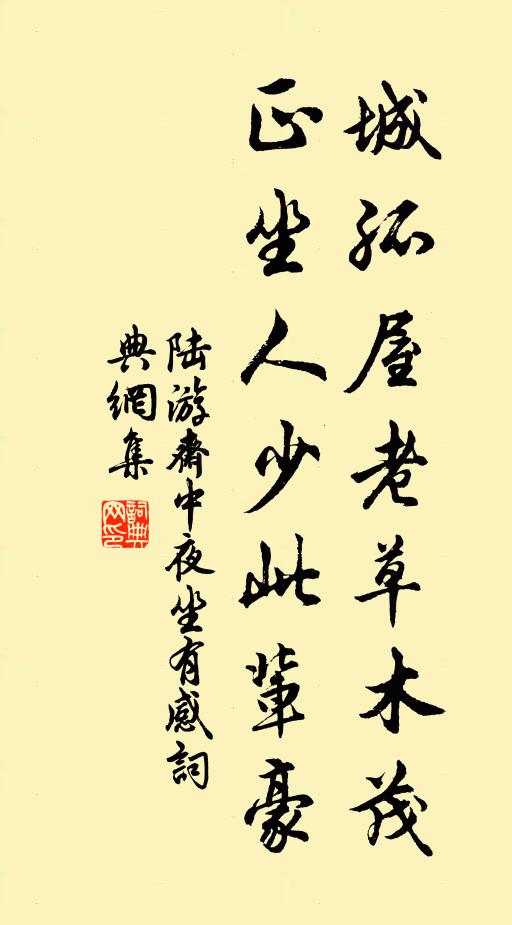 城孤屋老草木茂
正坐人少此輩豪
陆游斋中夜坐有感詞
典網集
詞典
网印